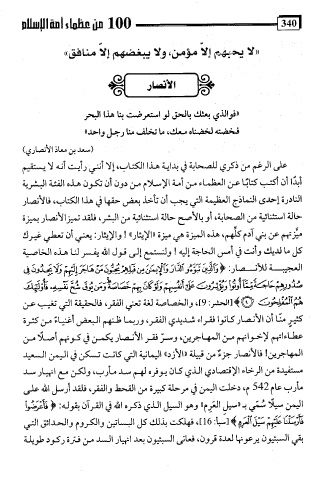 340
100 من عظماء أمة الإسلام
«لا يحبهم إلاّ مؤمن، ولا يبغضهم إلاّ منافق»
الأنصار
«فوالذي بعثك بالحق لو استعرضت بنا هذا البحر
فخضته لخضناه معك، ما تخلف منا رجل واحد»
(سعد بن معاذ الأنصاري)
على الرغم من ذكري للصحابة في بداية هذا الكتاب، إلا أنني رأيت أنه لا يستقيم
أبدًا أن أكتب كتابًا عن العظماء من أمة الإسلام من دون أن تكون هذه الفئة البشرية
النادرة إحدى النماذج العظيمة التي يجب أن تأخذ بعض حقها في هذا الكتاب، فالأنصار
حالة استثنائية من الصحابة، أو بالأصح حالة استثنائية من البشر، فلقد تميز الأنصار بميزة
ميّزتهم عن بني آدم كلّهم، هذه الميزة هي ميزة «الإيثار»! والإيثار: يعني أن تعطي غيرك
كل ما لديك وأنت في أمس الحاجة إليه! ولنستمع إلى قول الله يفسر لنا هذه الخاصية
العجيبة للأنصار: ﴿وَالَّذِينَ تَبَوَّءُو الدَّارَ وَالْإِيمَانَ مِن قَبْلِهِمْ يُحِبُّونَ مَنْ هَاجَرَ إِلَيْهِمْ وَلَا يَجِدُونَ فِي
صُدُورِهِمْ حَاجَةً مِّمَّا أُوتُوا وَيُؤْثِرُونَ عَلَىٰ أَنفُسِهِمْ وَلَوْ كَانَ بِهِمْ خَصَاصَةٌ وَمَن يُوقَ شُحَّ نَفْسِهِ فَأُولَٰئِكَ
هُمُ الْمُفْلِحُونَ﴾ [الحشر: 9]، والخصاصة لغة تعني الفقر، فالحقيقة التي تغيب عن
كثيرٍ منّا أن الأنصار كانوا فقراء شديدي الفقر، وربما ظنهم البعض أغنياءً من كثرة
عطاءاتهم لإخوانهم من المهاجرين، وسرّ فقر الأنصار يكمن في كونهم أصلًا من
المهاجرين! فالأنصار جزءٌ من قبيلة «الأزد» اليمانية التي كانت تسكن في اليمن السعيد
مستفيدة من الرخاء الإقتصادي الذي كان يوفره لهم سد مأرب، ولكن مع انهيار سد
مأرب عام 542 م، دخلت اليمن في مرحلة كبيرة من القحط والفقر، فلقد أرسل الله على
اليمن سيلًا سُمّي بـ«سيل العرم» وهو السيل الذي ذكره الله في القرآن بقوله: ﴿فَأَعْرَضُوا
فَأَرْسَلْنَا عَلَيْهِمْ سَيْلَ الْعَرِمِ﴾ [سبأ: 16]، فهلكت بذلك كل البساتين والكروم والحدائق التي
بقي السبئيون يرعونها لعدة قرون، فعانى السبئيون بعد انهيار السد من فترة ركود طويلة